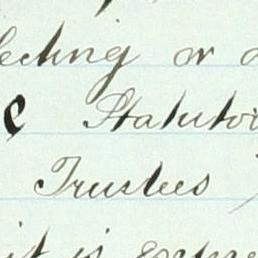 lecting or
Statutor
Trustees
it is expre